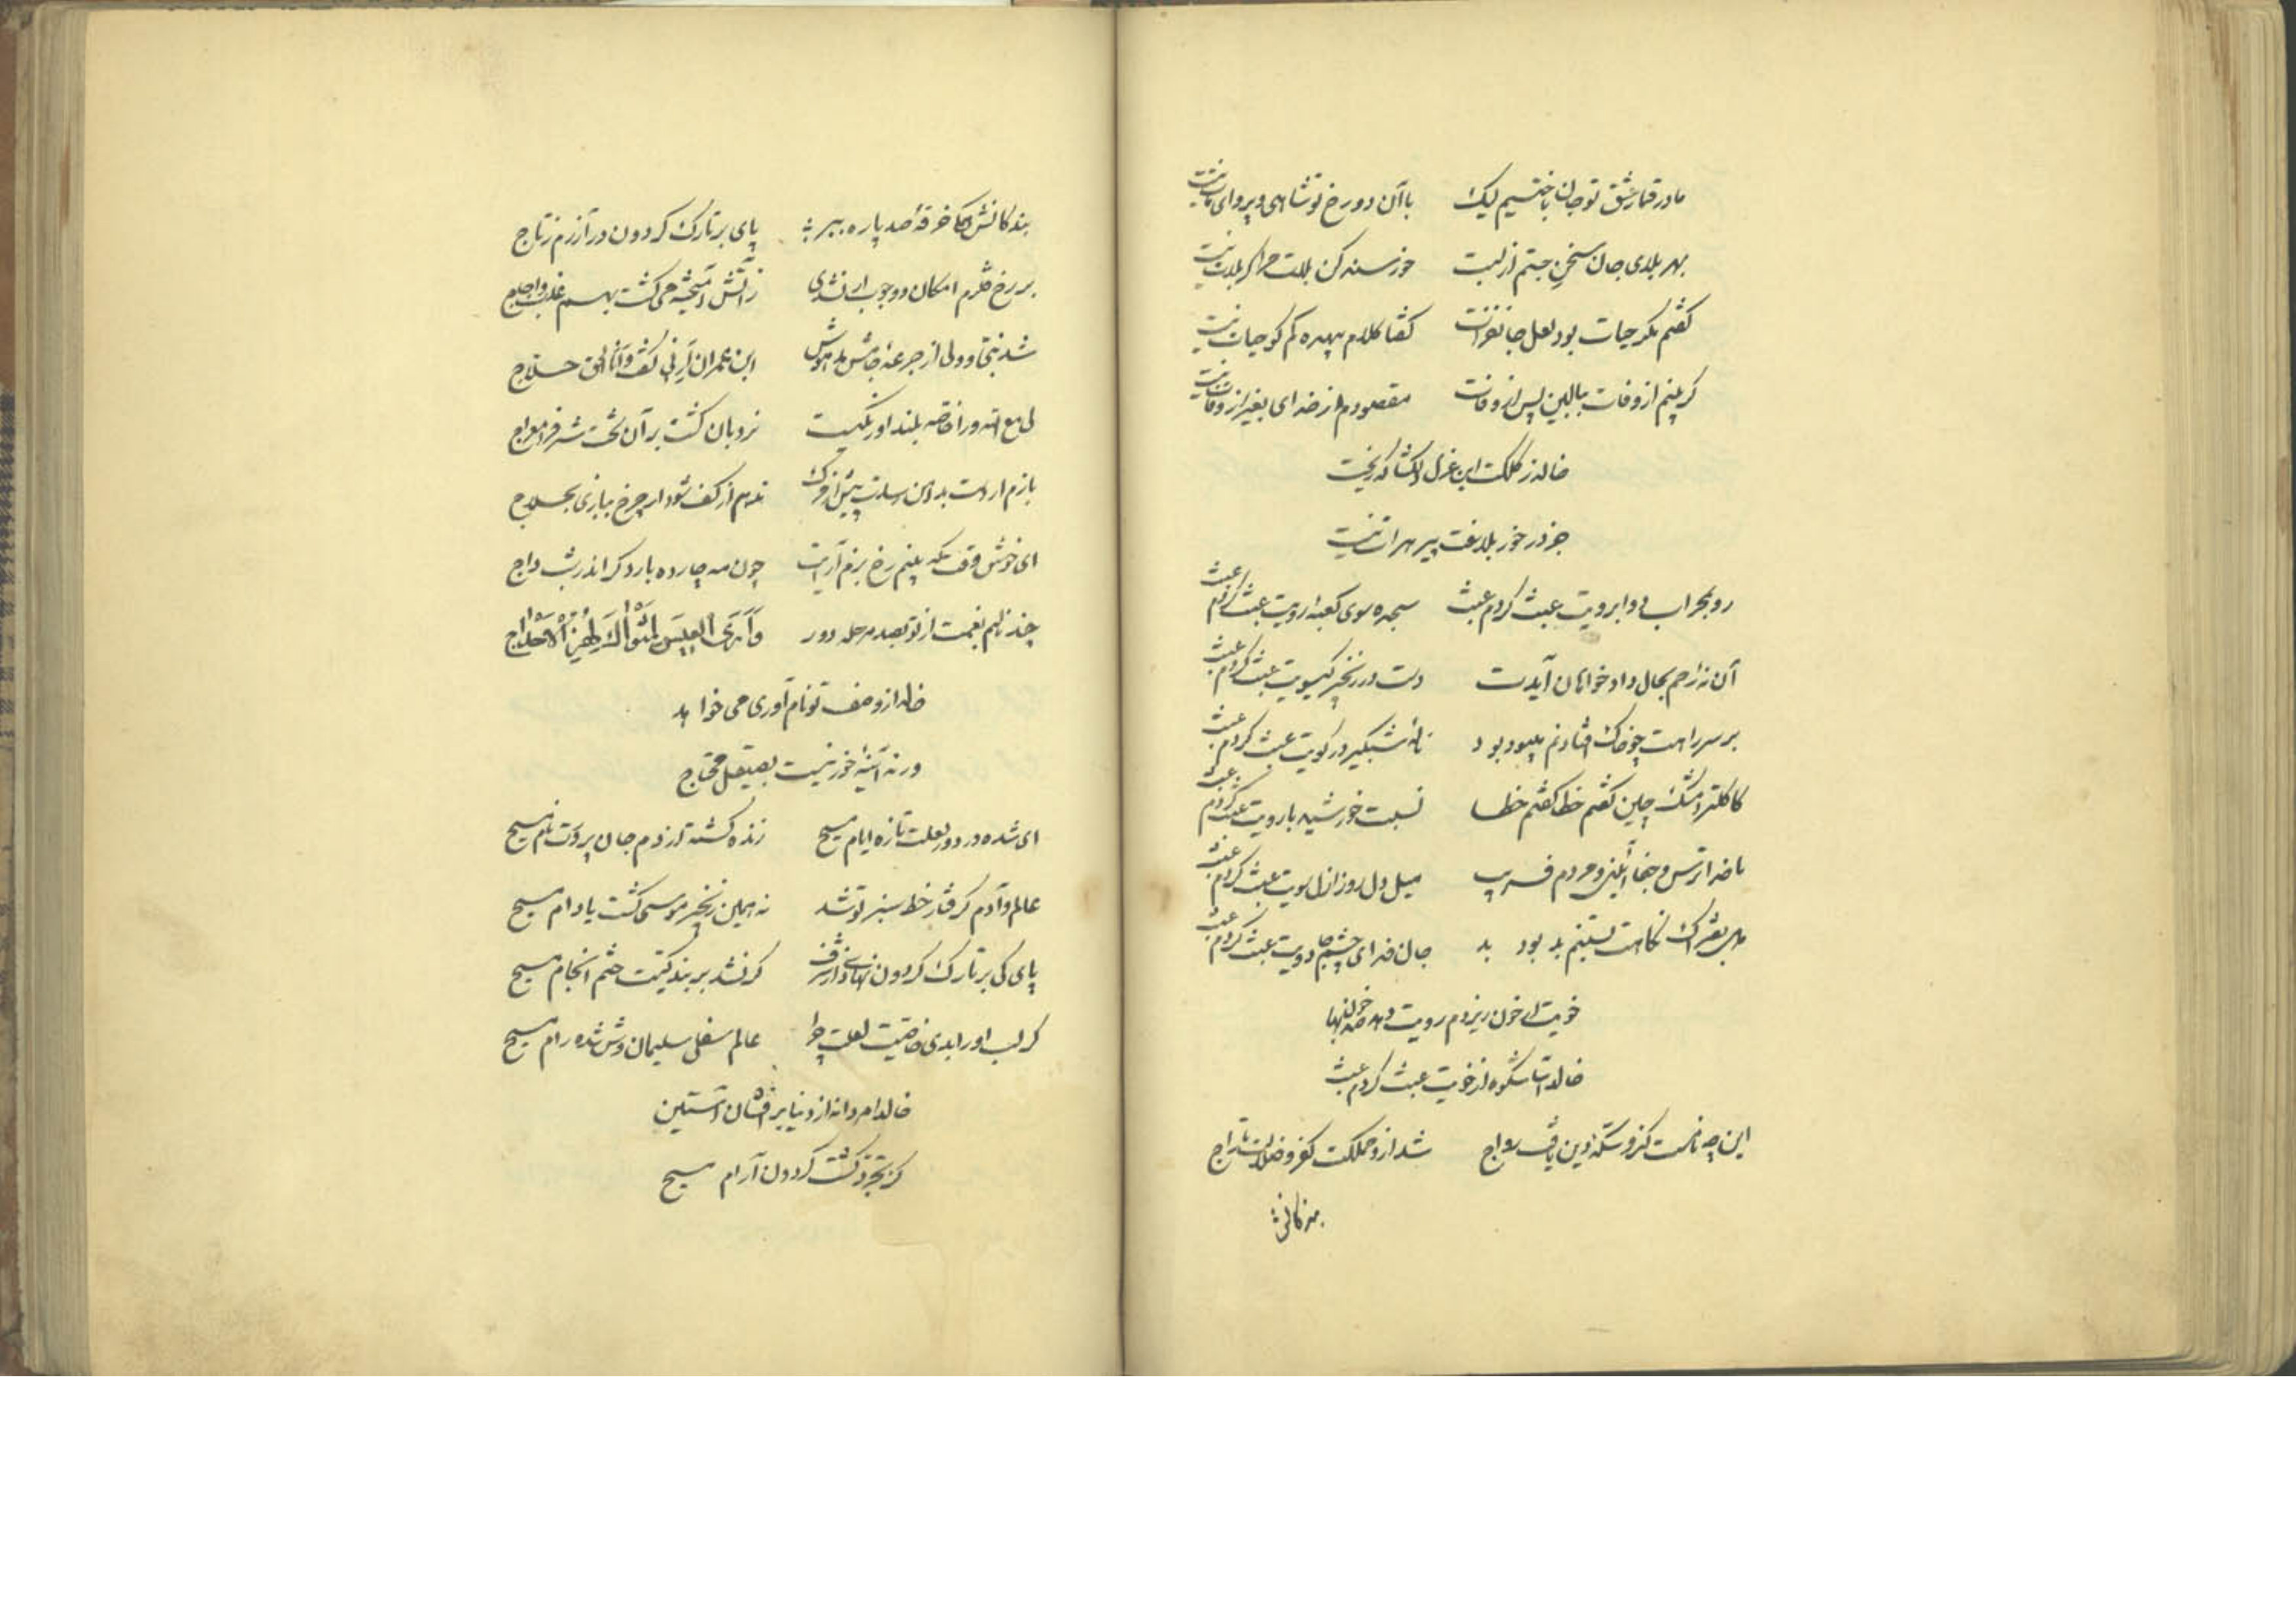 ما در قمار عشق تو جان باختیم لیک با آن دو رخ تو شاهی و پروای مات نیست
بهر بلای جان سخن جستم از لبت خورسند کن بلات مرا گر بلات نیست
گفتم مگر حیات بود لعل جانفزات گفتا کلام بیهده کم گو حیات نیست
گر بینم از وفات ببالین پس از وفات مقصودم از خدای بغیر از وفات نیست
خالد ز کلکت این غزل دلگشا که ریخت
جز در خور بلاغت پیر هرات نیست
رو بمحراب دو ابرویت عبث کردم عبث سجده سوی کعبهٔ رویت عبث کردم عبث
آن نه رحم بحال دادخواهان آیدت دست در زنجیر گیسویت عبث کردم عبث
بر سر راهت چو خاک افتادنم بیسود بود نالهٔ شبگیر در کویت عبث کردم عبث
کاکلت را مشک چین گفتم خطا گفتم خطا نسبت خورشید با رویت عبث کردم عبث
ناخدا ترس و جفا آئین و مردم فریب میل دل روز ازل سویت عبث کردم عبث
دل بفتراک نگاهت بستنم بد بود بد جان فدای چشم جادویت عبث کردم عبث
خویت ار خون ریزدم رویت دهد صد خونبها
خالدا شکوه از خویت عبث کردم عبث
این چه نامست کزو سکهٔ دین یافت رواج شد ازو مملکت کفر و ضلالت تاراج
بندگانش
بندگانش که خرقهٔ صد پاره ببر پای بر تارک گردون در آرزم ز تاج
بر رخ قلزم امکان و وجوب ار نشدی ز آتش آمیخته می گشت بهم عذب و اجاج
شد نبی و ولی از جرعهٔ جامش مدهوش ابن عمران اَرِنی گفت و انا الحق حلاج
لی مع الله ورا خاصه بلند اورنگیست نردبان گشت بر آن تخت شرف را معراج
بازم ار دست بدامن رسدت پیش از مرگ ندهم از کف شود ار چرخ ببازی لجلاج
ای خوش وقت که بینم رخ بزم آرایت چون مه چارده بارد گر اندر شب داج
چند نالم بغمت از تو بصد مرحله دور وَاَرَی العیسَ لمثواک
خالد از وصف تو نام آوری می خواهد
ورنه آئینهٔ خور نیست بصیقل محتاج
ای شده در دور لعلت تازه ایام مسیح زنده گشته از دم جان پرورت نام مسیح
عالم و آدم گرفتار خط سبز تو شد نه همین زنجیر موسی گشت یا دام مسیح
پای کی بر تارک گردون نهادی از شرف گر نشد بر بندگیت ختم انجام مسیح
گر لب او را بدی خاصیت لعلت چرا عالم سفلی سلیمان وش نشد رام مسیح
خالدا مردانه از دنیا بر افشان آستین
کز تجرد گشت گردون آرام مسیح